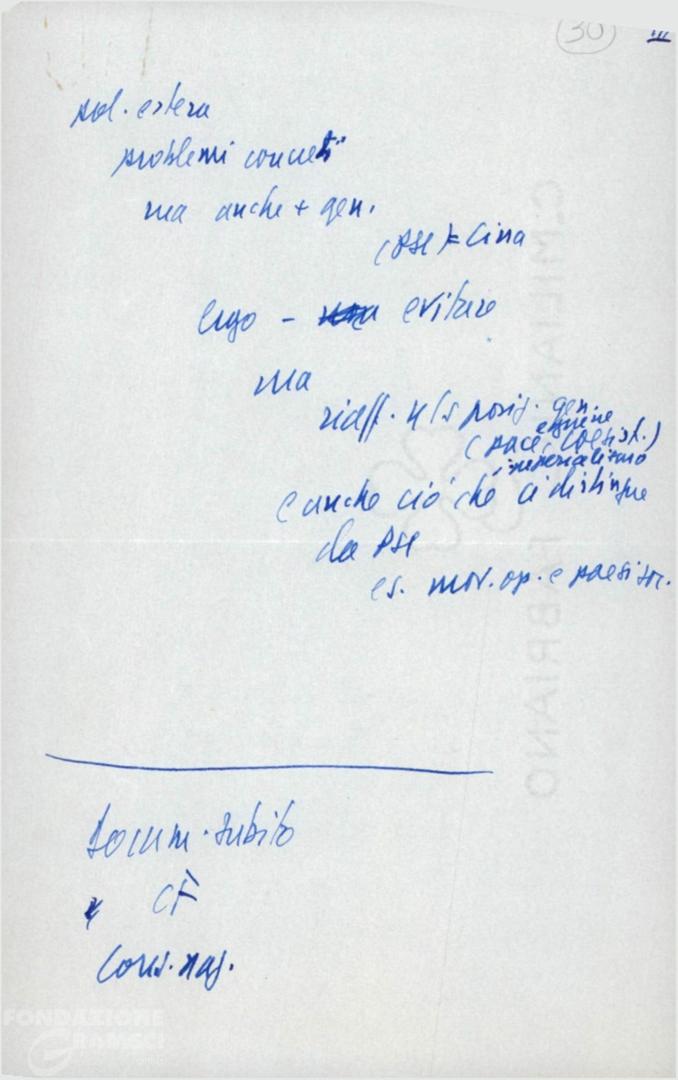 30 III
pol. estera
problemi concreti
ma anche + gen.
(PSI) = Cina
ergo - evitare
ma
riaff. ns posiz. gen.
(pace, coesist.)
imperialismo
e anche ciò che ci distingue
da PSI
es. mov. op. e paesi soc.
Docum. subito
CF
Cons. naz.
C.MILIANI FABRIANO
FONDAZIONE
GRAMSCI